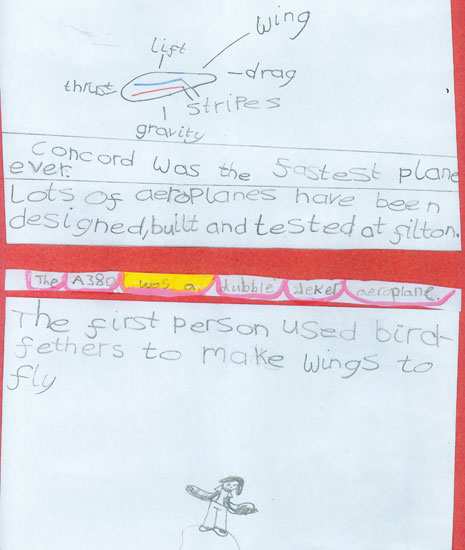 wing
lift
thrust
drag
stripes
gravity
Concord was the fastest plane
ever.
Lots of aeroplanes have been
designed, built and tested at filton.
The A380 was a dubble deker aeroplane.
The first person used bird-
fethers to make wings to
fly